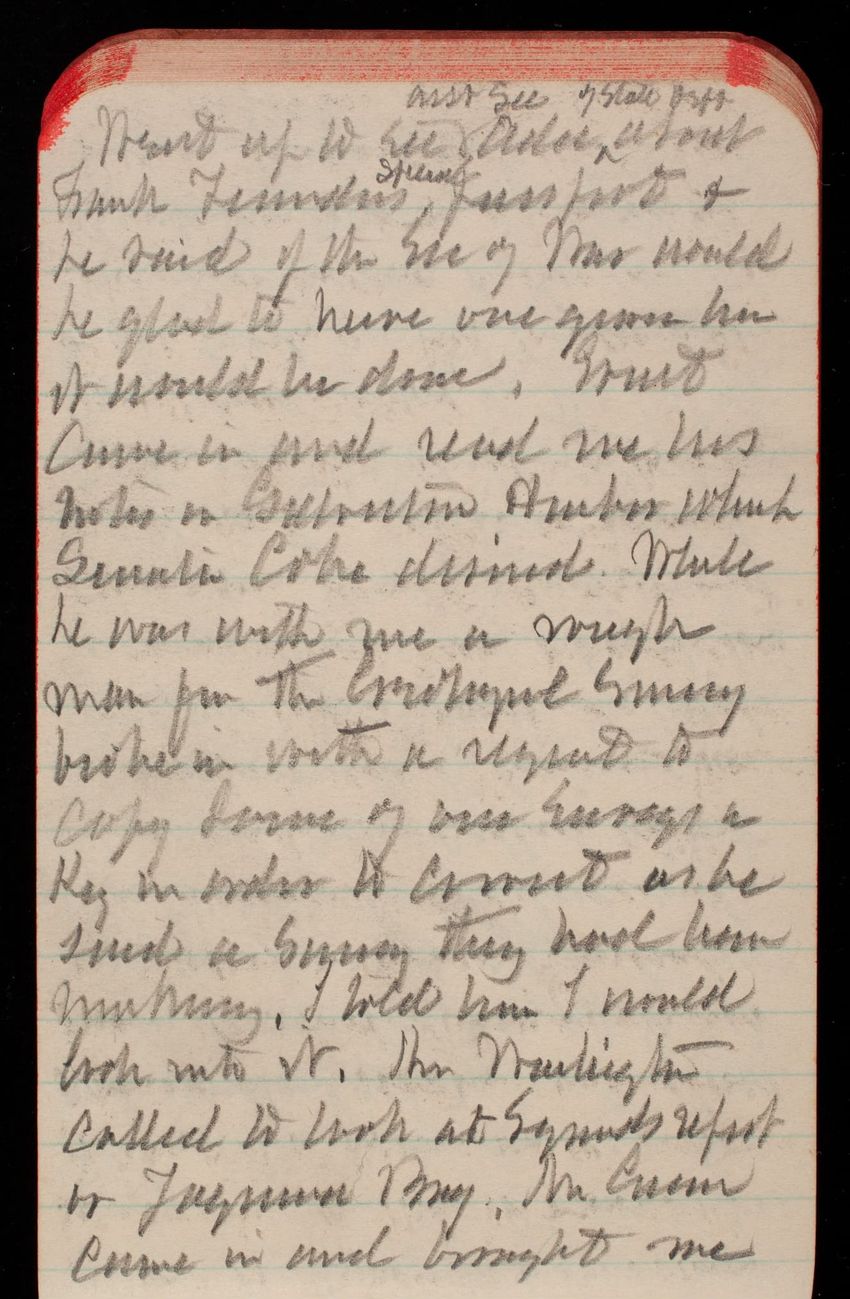 asst Sec of State Dept
Went up to see Adee about
Frank Special passport &
he said if the Sec of War would
be glad to have one given him
it would be done. Ernst
Came in and read me his
notes on Galveston Harbor which
Senator Coke desired. While
he was with me a rough
man from the Geological Survey
broke in with a request to
Copy Some of our Surveys
Key in order to correct as he
said a Survey they had been
making. I told him I would
look into it. Mr Washington
Called to look at Symonds report
on Bay. Mr
Came in and brought me